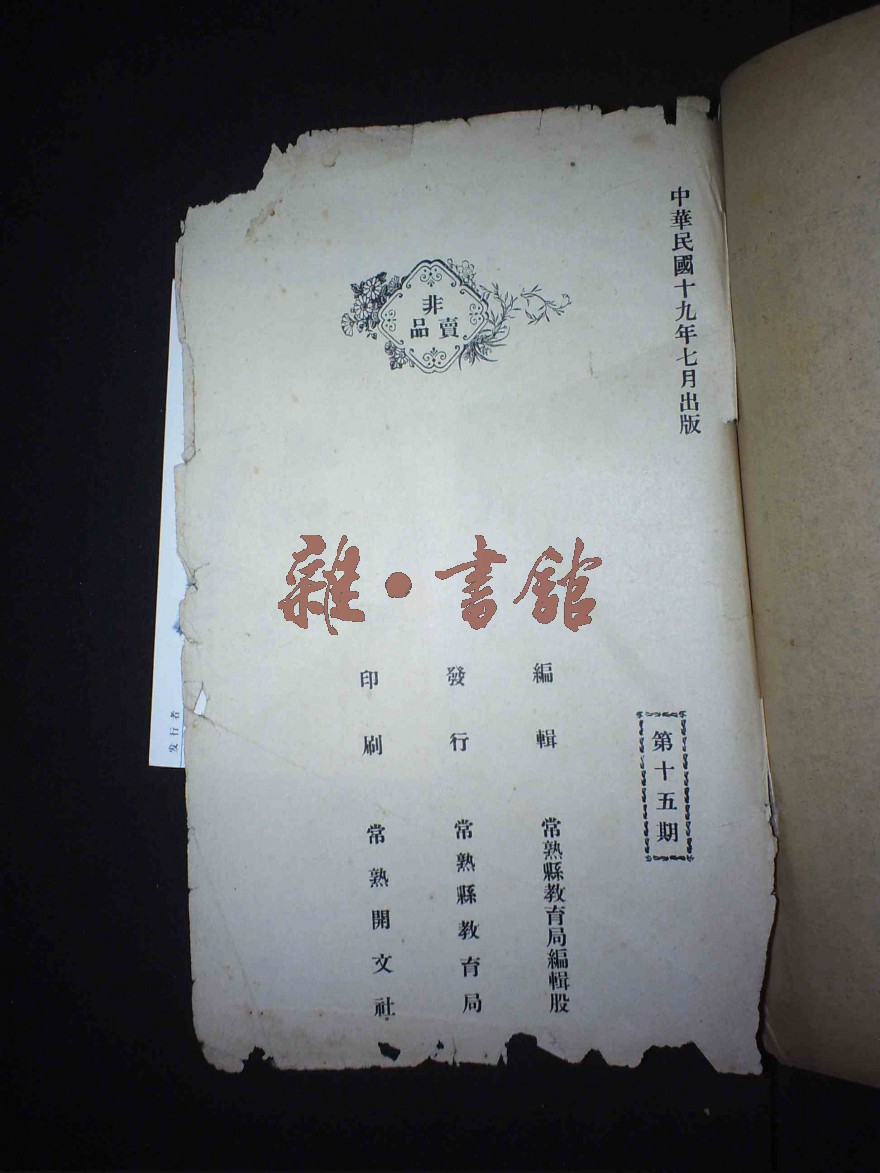 中華民國十九年七月出版
非賣品
雜·書館
第十五期
編輯 常熟縣教育局編輯股
發行 常熟縣教育局
印刷 常熟開文社
发行者